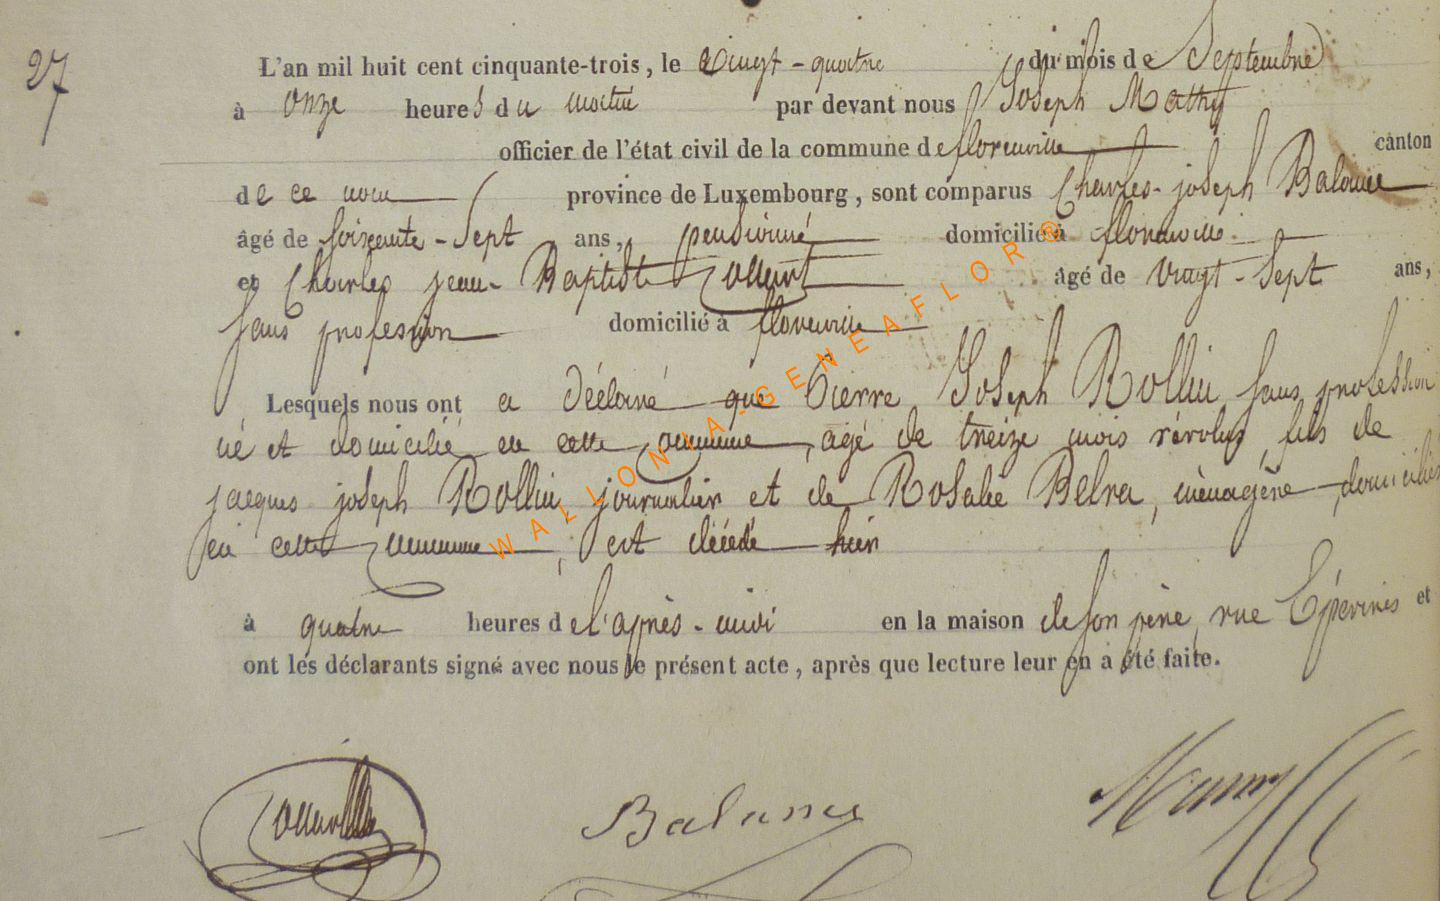 27
L'an mil huit cent cinquante-trois, le vingt-quatre du mois de Septembre
à onze heures du matin par devant nous Joseph Mathy
officier de l'état civil de la commune de florenville canton
de ce nom province de Luxembourg, sont comparus Charles-joseph Balance
âgé de soixante-sept ans, pensionné domicilié à florenville
et Charles jean-Baptiste âgé de vingt-sept ans,
sans profession domicilié à florenville
Lesquels nous ont a déclaré que Pierre Joseph Rollin sans profession
né et domicilié en cette commune, agé de treize mois révolus, fils de
jacques joseph Rollin, journalier et de Rosalie Belva, ménagêre domiciliés
en cette commune, est décédé hier
à quatre heures de l'après-midi en la maison de son père, rue Epérinés et
ont les déclarants signé avec nous le présent acte, après que lecture leur en a été faite.
Balance
WALLONIA-GENEAFLOR®